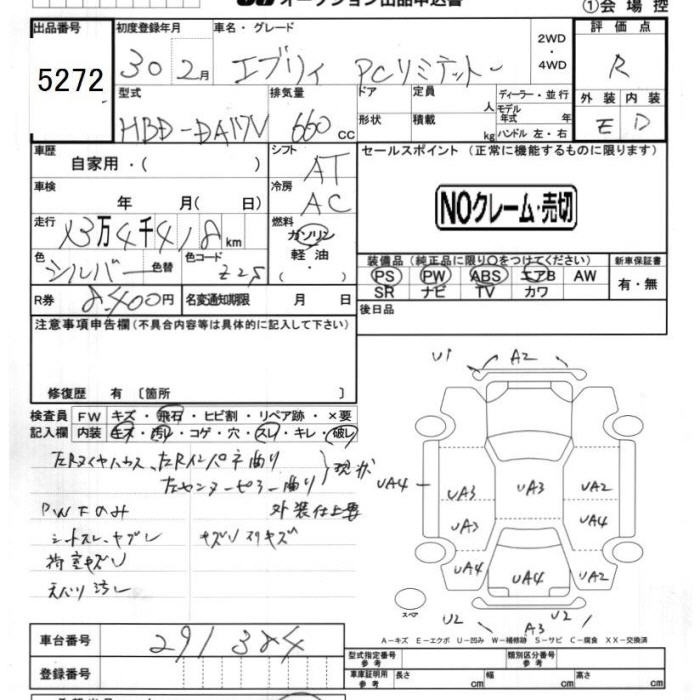 オークション出品申込書
①会場控
出品番号 初度登録年月 車名・グレード 評価点
5272 30 2月 エブリィ PCリミテッド 2WD・4WD R
型式 排気量 ドア 定員 人 ディーラー・並行 外装 内装
HBD-DA17V 660 CC 形状 積載 kg モデル年式 年 ハンドル 左・右 E D
車歴 自家用・( ) シフト AT セールスポイント (正常に機能するものに限ります)
車検 年 月( 日) 冷房 AC
NOクレーム・売切
走行 13万4千418km 燃料 ガソリン 軽油・( )
色 シルバー 色替 色コード Z2S
装備品(純正品に限り○をつけてください) 新車保証書
PS PW ABS エアB AW 有・無
SR ナビ TV カワ
R券 8,400円 名変通知期限 月 日
後日品
注意事項申告欄(不具合内容等は具体的に記入して下さい)
修復歴 有 〔箇所 〕
検査員記入欄 FW キズ・飛石・ヒビ割・リペア跡・×要
内装 キズ・汚レ・コゲ・穴・スレ・キレ・破レ
左Rタイヤハウス、左Rインパネ曲り
左センターピラー曲り
現状
PW下のみ 外装仕上要
シートスレ、ヤブレ
荷室キズU
天バリ汚レ
U1 A2
UA4 UA3 UA3 UA2
UA3 UA4
UA4 UA4 UA2
スペア
U2 A3 U2
A-キズ E-エクボ U-凹み W-補修跡 S-サビ C-腐食 XX-交換済
車台番号 291384
登録番号
型式指定番号 参考 類別区分番号 参考
車庫証明用 参考 長さ cm 幅 cm 高さ cm